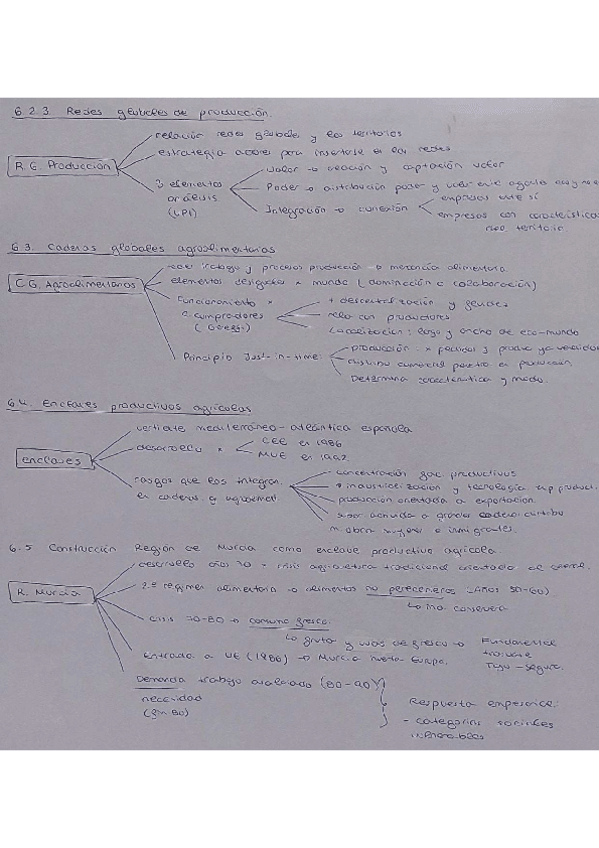 6.2.3. Redes globales de producción.
relación redes globales y los territorios
estrategia actores para insertarse en las redes
R.G. Producción
3 elementos análisis (GPI)
Valor → creación y captación valor
Poder → distribución poder y
Integración → conexión
empresas entre sí
empresas con características territorio.
6.3. Cadenas globales agroalimentarias
trabajo y procesos producción → mercancía alimentaria.
C.G. Agroalimentarias
elementos desiguales x mundo (dominación o colaboración)
Funcionamiento x compradores
+ descentralización y
relo con productores
Localización: largo y ancho de eco-mundo
Principio Just-in-time:
producción x pedidos y produce ya vendido
comercial en producción
Determina característica y modo.
6.4. Enclaves productivos agrícolas
vertiente mediterráneo-atlántica española
enclaves
desarrollo x
CEE en 1986
MUE en 1992
rasgos que los integran en cadenas g. agroalimen.
concentración productivos
industrialización y tecnología sup product.
producción orientada a exportación.
a grandes cadenas distribu
m. obra mujeres e inmigrantes.
6.5 Construcción Región de Murcia como enclave productivo agrícola.
desarrollo años 70 → crisis agricultura tradicional orientada al
R. Murcia
2º regimen alimentario → alimentos no perecederos (años 50-60)
↳ ind. conserva
crisis 70-80 → consumo fresco:
↳ fruta y en fresco →
Tajo-Segura.
Entrada a UE (1986) → Murcia Europa.
Demanda trabajo asalariado (80-90)
necesidad
Respuesta
- categorías sociales vulnerables